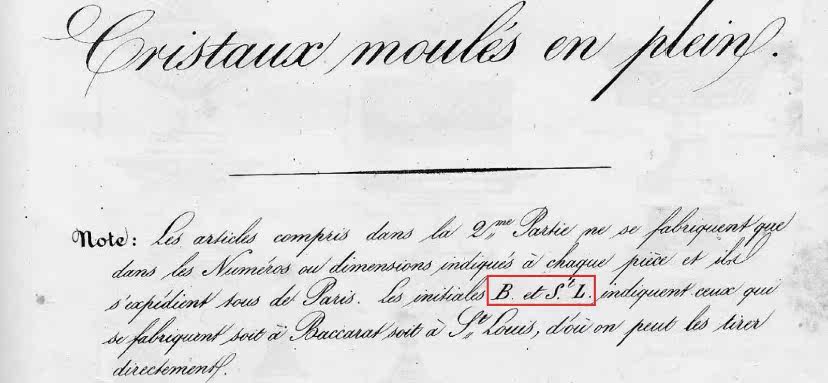 Cristaux moulés en plein.
Note: Les articles compris dans la 2me Partie ne se fabriquent que
dans les Numéros ou dimensions indiqués à chaque pièce et ils
s'expédient tous de Paris. Les initiales B. et St L. indiquent ceux qui
se fabriquent soit à Baccarat soit à St Louis, d'où on peut les tirer
directement.